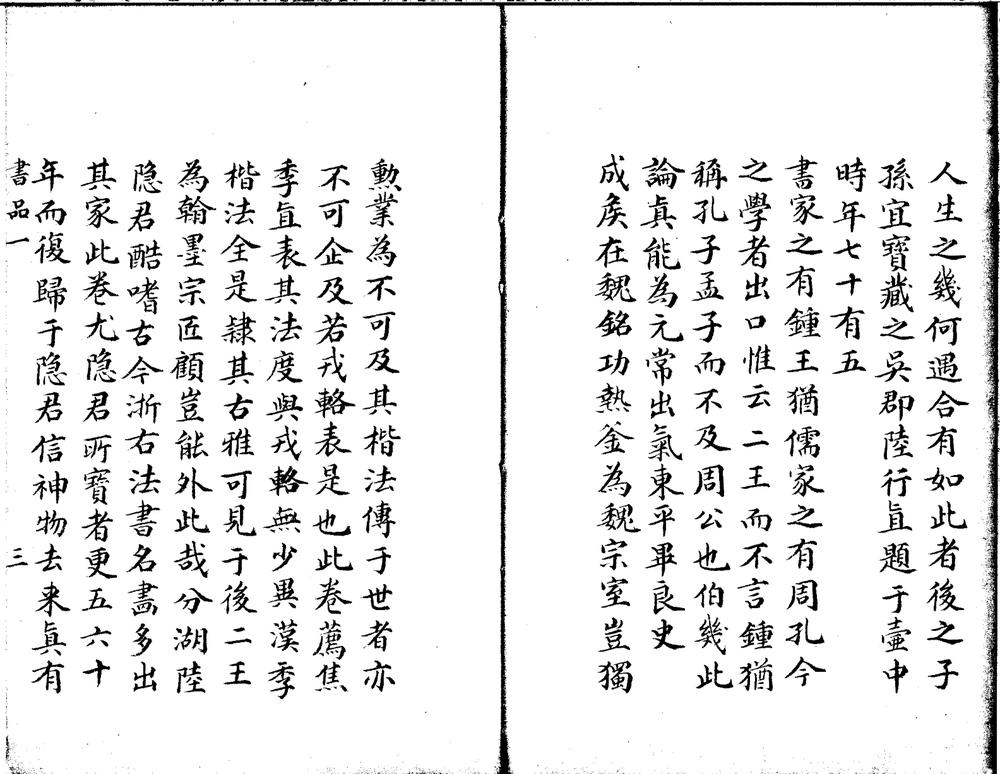 人生之幾何遇合有如此者後之子
孫宜寶藏之吳郡陸行直題于壷中
時年七十有五
書家之有鍾王猶儒家之有周孔今
之學者出口惟云二王而不言鍾猶
稱孔子孟子而不及周公也伯幾此
論眞能為元常出氣東平畢良史
成矦在魏銘功熱釜為魏宗室豈獨
勲業為不可及其楷法傳于世者亦
不可企及若戎輅表是也此卷薦焦
季直表其法度與戎輅無少異漢季
楷法全是隷其古雅可見于後二王
為翰墨宗匠顧豈能外此哉分湖陸
隐君酷嗜古今浙右法書名畵多出
其家此卷尤隐君所寶者更五六十
年而復歸于隐君信神物去来眞有
書品一 三